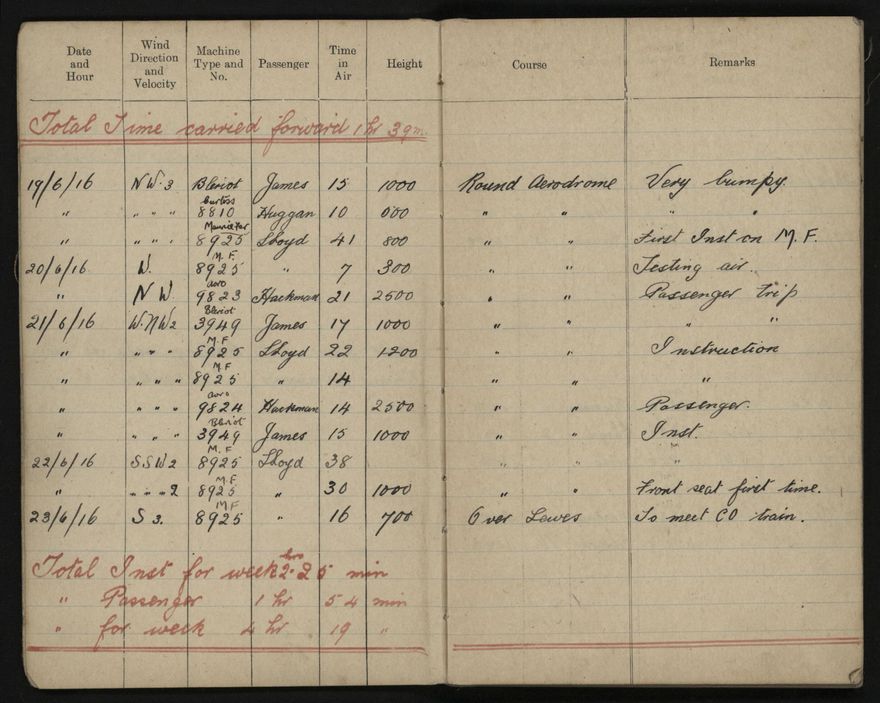 Date and Hour Wind Direction and Velocity Machine Type and No. Passenger Time in Air Height Course Remarks
Total Time carried forward 1 hr 39m.
19/6/16 N W. 3 Bleriot James 15 1000 Round Aerodrome Very bumpy.
" " " " Curtiss 8810 Huggan 10 600 " " " "
" " " " Maurice Far 8925 Lloyd 41 800 " " First Inst on M. F.
20/6/16 W. M. F. 8925 " 7 300 " " Testing air.
" N W. avro 9823 Hackman 21 2500 " " Passenger trip
21/6/16 W. N W 2 Bleriot 3949 James 17 1000 " " " "
" " " " M. F 8925 Lloyd 22 1200 " " Instruction
" " " " M F 8925 " 14 " " "
" " " " avro 9824 Hackman 14 2500 " " Passenger.
" " " " Bleriot 3949 James 15 1000 " " Inst.
22/6/16 S. S W 2 M. F 8925 Lloyd 38 " " "
" " " " 2 M F 8925 " 30 1000 " " Front seat first time.
23/6/16 S 3. M F 8925 " 16 700 Over Lewes To meet CO train.
Total Inst for week 2 hrs 25 min
" Passenger 1 hr 54 min
" for week 4 hr 19 "